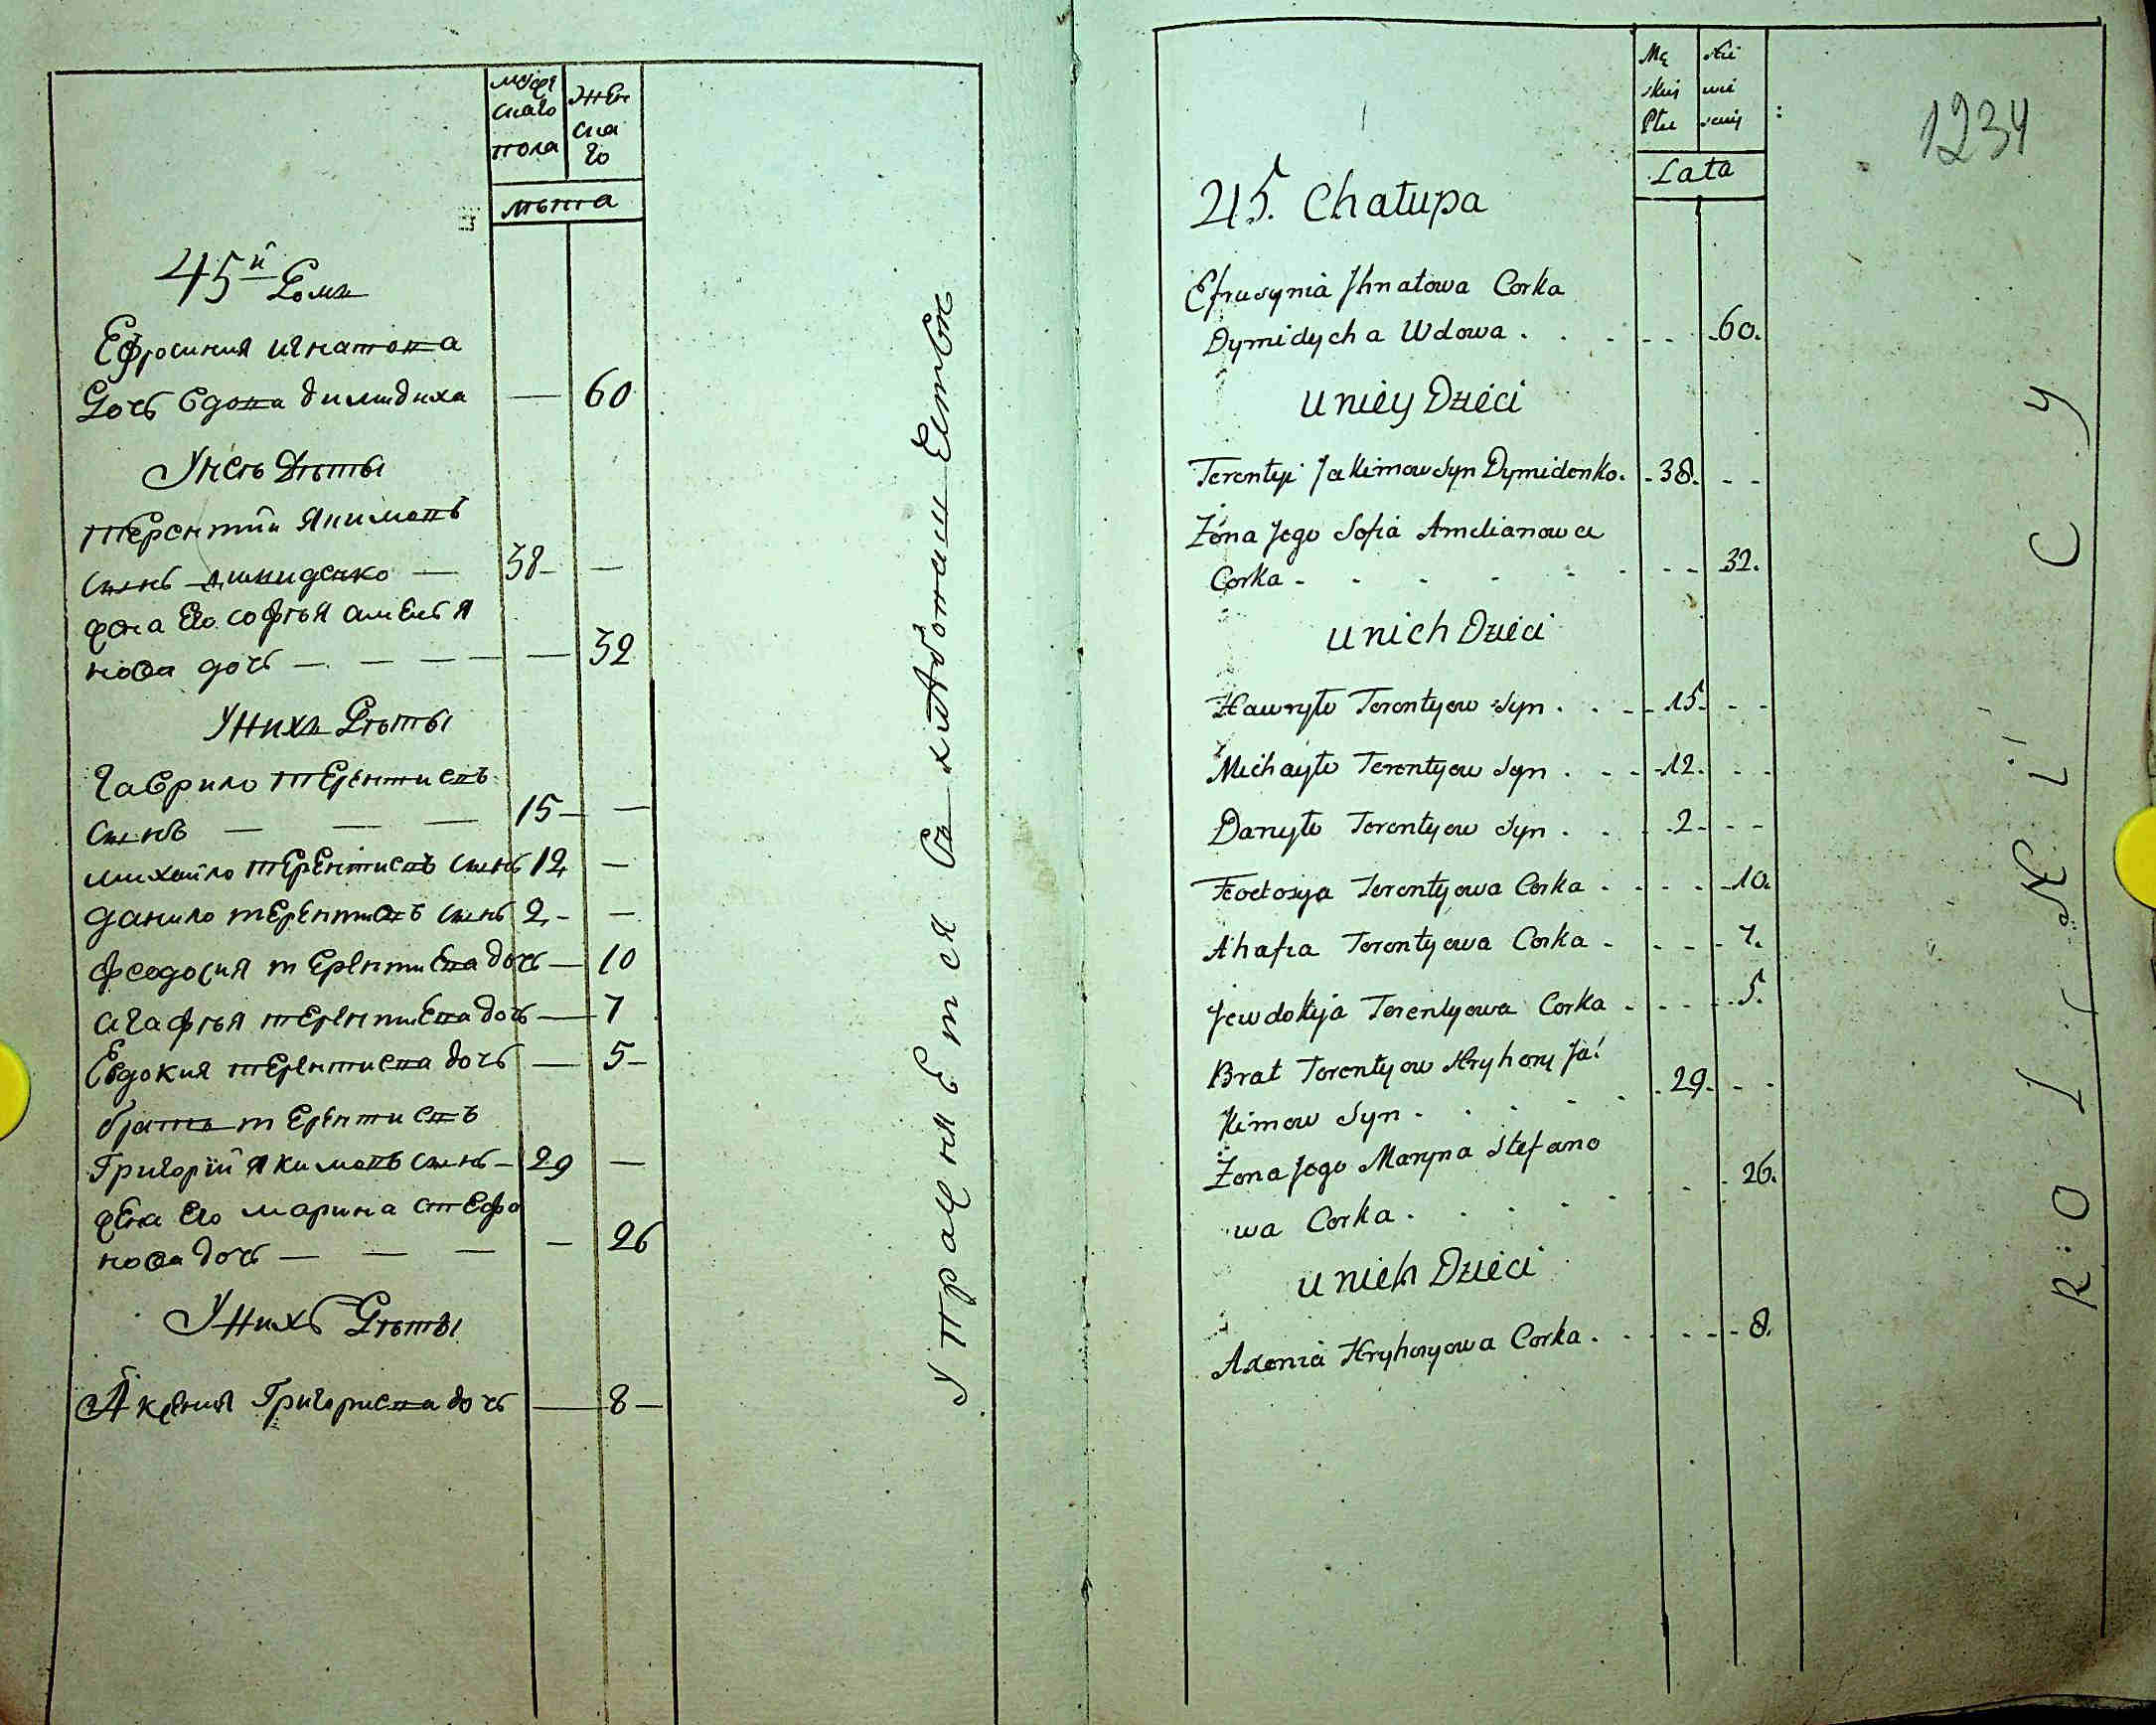 мужескаго пола
женскаго
лѣта
45й Домъ
Ефросиния игнатова
Дочь вдова димидиха — 60
У неѣ Дѣти
терентий якимовъ
сынъ димиденко — 38 — —
жена Его софья амелья
нова дочь — — — — — 32
У нихъ Дѣти
гаврило терентиевъ
сынъ — — — 15 — —
михайло терентиевъ сынъ 12 —
данило терентиевъ сынъ 2 — —
феодосия терентиева дочь — 10
агафья терентиева дочь — 7
Евдокия терентиева дочь — 5 —
братъ терентиевъ
Григорий якимовъ сынъ — 29 —
жена Его марина стефа
нова дочь — — — — 26
У нихъ Дѣти
Аксения Григориева дочь — 8 —
Упражняется в хлебопашестве
Mę skiej Płci
Że ńskiej
Lata
1234
45. Chałupa
Efrusynia Jhnatowa Corka
Dymidycha Wdowa . . . - - - 60.
U niey Dzieci
Terentyi Jakimow Syn Dymidenko. - 38. - -
Żona Jego Sofia Amelianowa
Corka - - - - - - - - 32.
U nich Dzieci
Hawryło Terentyow Syn . . - - 15. - -
Michayło Terentyow Syn . - - - 12. - -
Danyło Terentyow Syn . . . 2. - -
Feodosya Terentyowa Corka . - - . - 10.
Ahafia Terentyowa Corka . - - - 7.
Jewdokija Terentyowa Corka . - - - . 5.
Brat Terentyow Hryhory Ja:
Kimow Syn . . . - . . 29. - -
Żona Jego Maryna Stefano
wa Corka . . . . - . - . 26.
U nich Dzieci
Axenia Hryhoryowa Corka . - - - - 8.